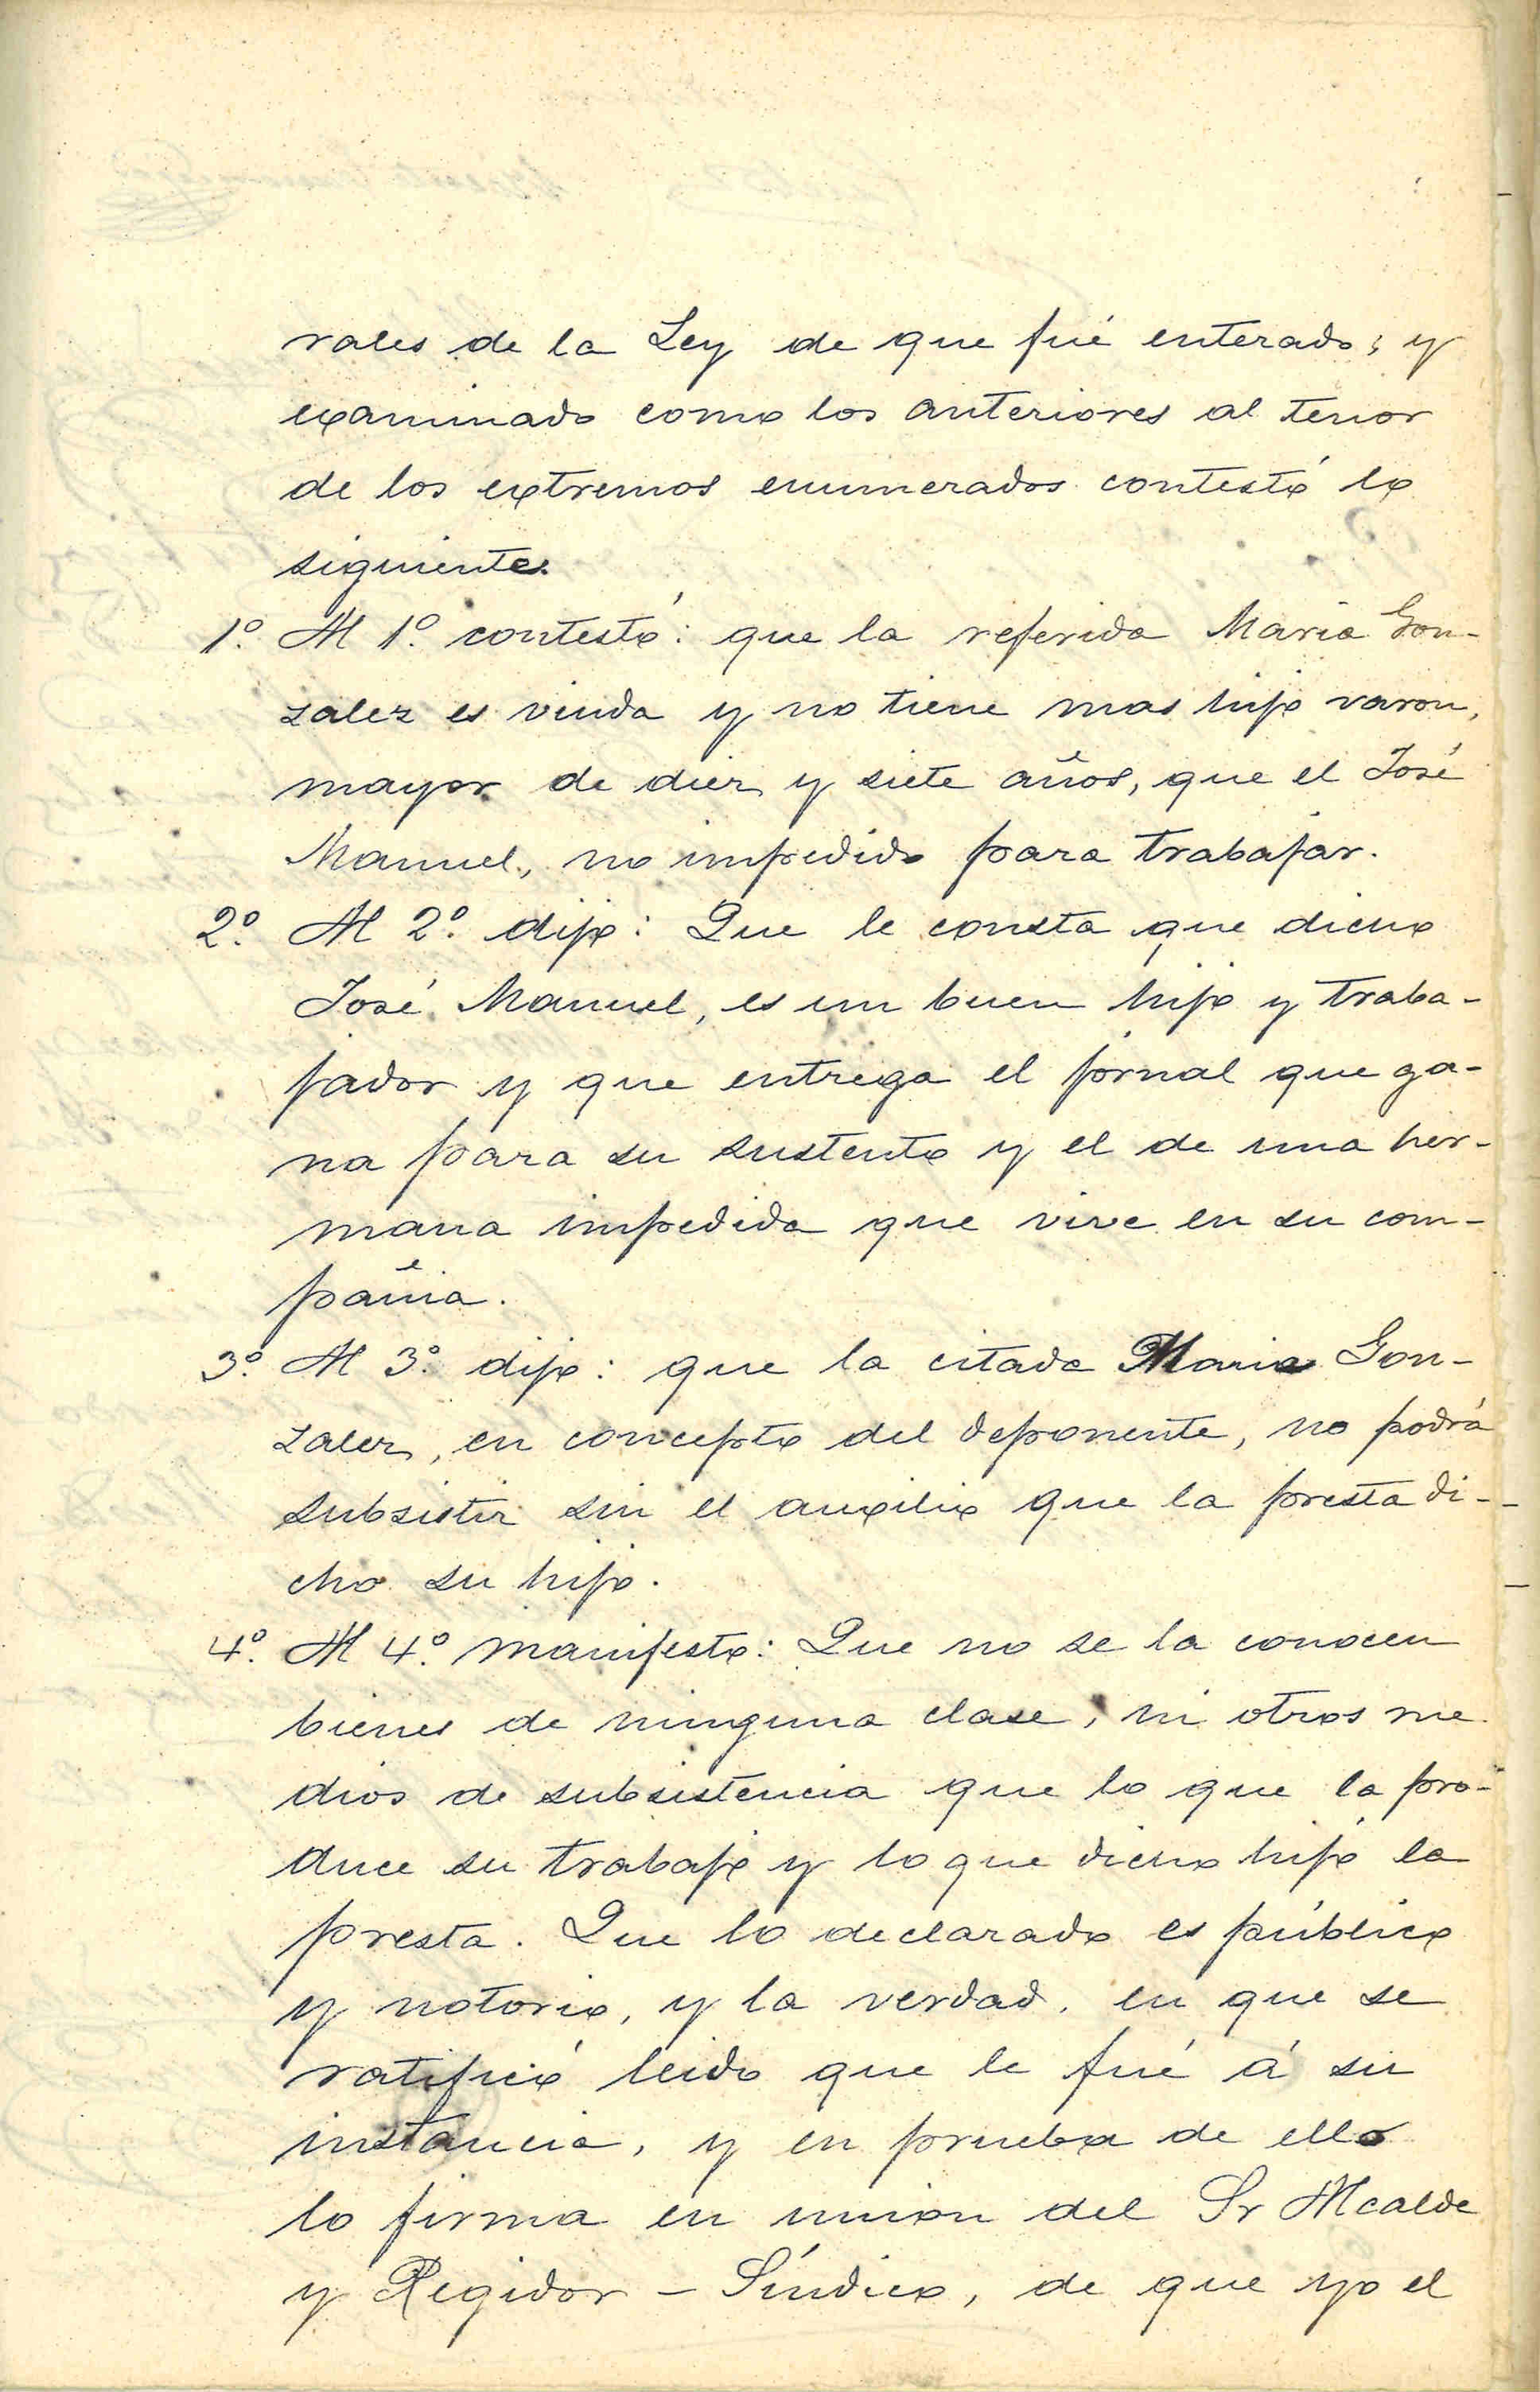 rales de la Ley de que fué enterado; y
examinado como los anteriores al tenor
de los extremos enumerados contestó lo
siguiente.
1º. Al 1º. contestó: que la referida Maria Gon-
zalez es viuda y no tiene mas hijo varon,
mayor de diez y siete años, que el José
Manuel, no impedido para trabajar.
2º. Al 2º. dijo: Que le consta que dicho
José Manuel, es un buen hijo y traba-
jador y que entrega el jornal que ga-
na para su sustento y el de una her-
mana impedida que vive en su com-
pañia.
3º. Al 3º. dijo: que la citada Maria Gon-
zalez, en concepto del deponente, no podrá
subsistir sin el auxilio que la presta di-
cho su hijo.
4º. Al 4º. manifesto: Que no se la conocen
bienes de ninguna clase, ni otros me
dios de subsistencia que lo que la pro-
duce su trabajo y lo que dicho hijo la
presta. Que lo declarado es público
y notorio, y la verdad, en que se
ratificó leido que le fué á su
instancia, y en prueba de ello
lo firma en union del Sr Alcalde
y Regidor - Síndico, de que yo el